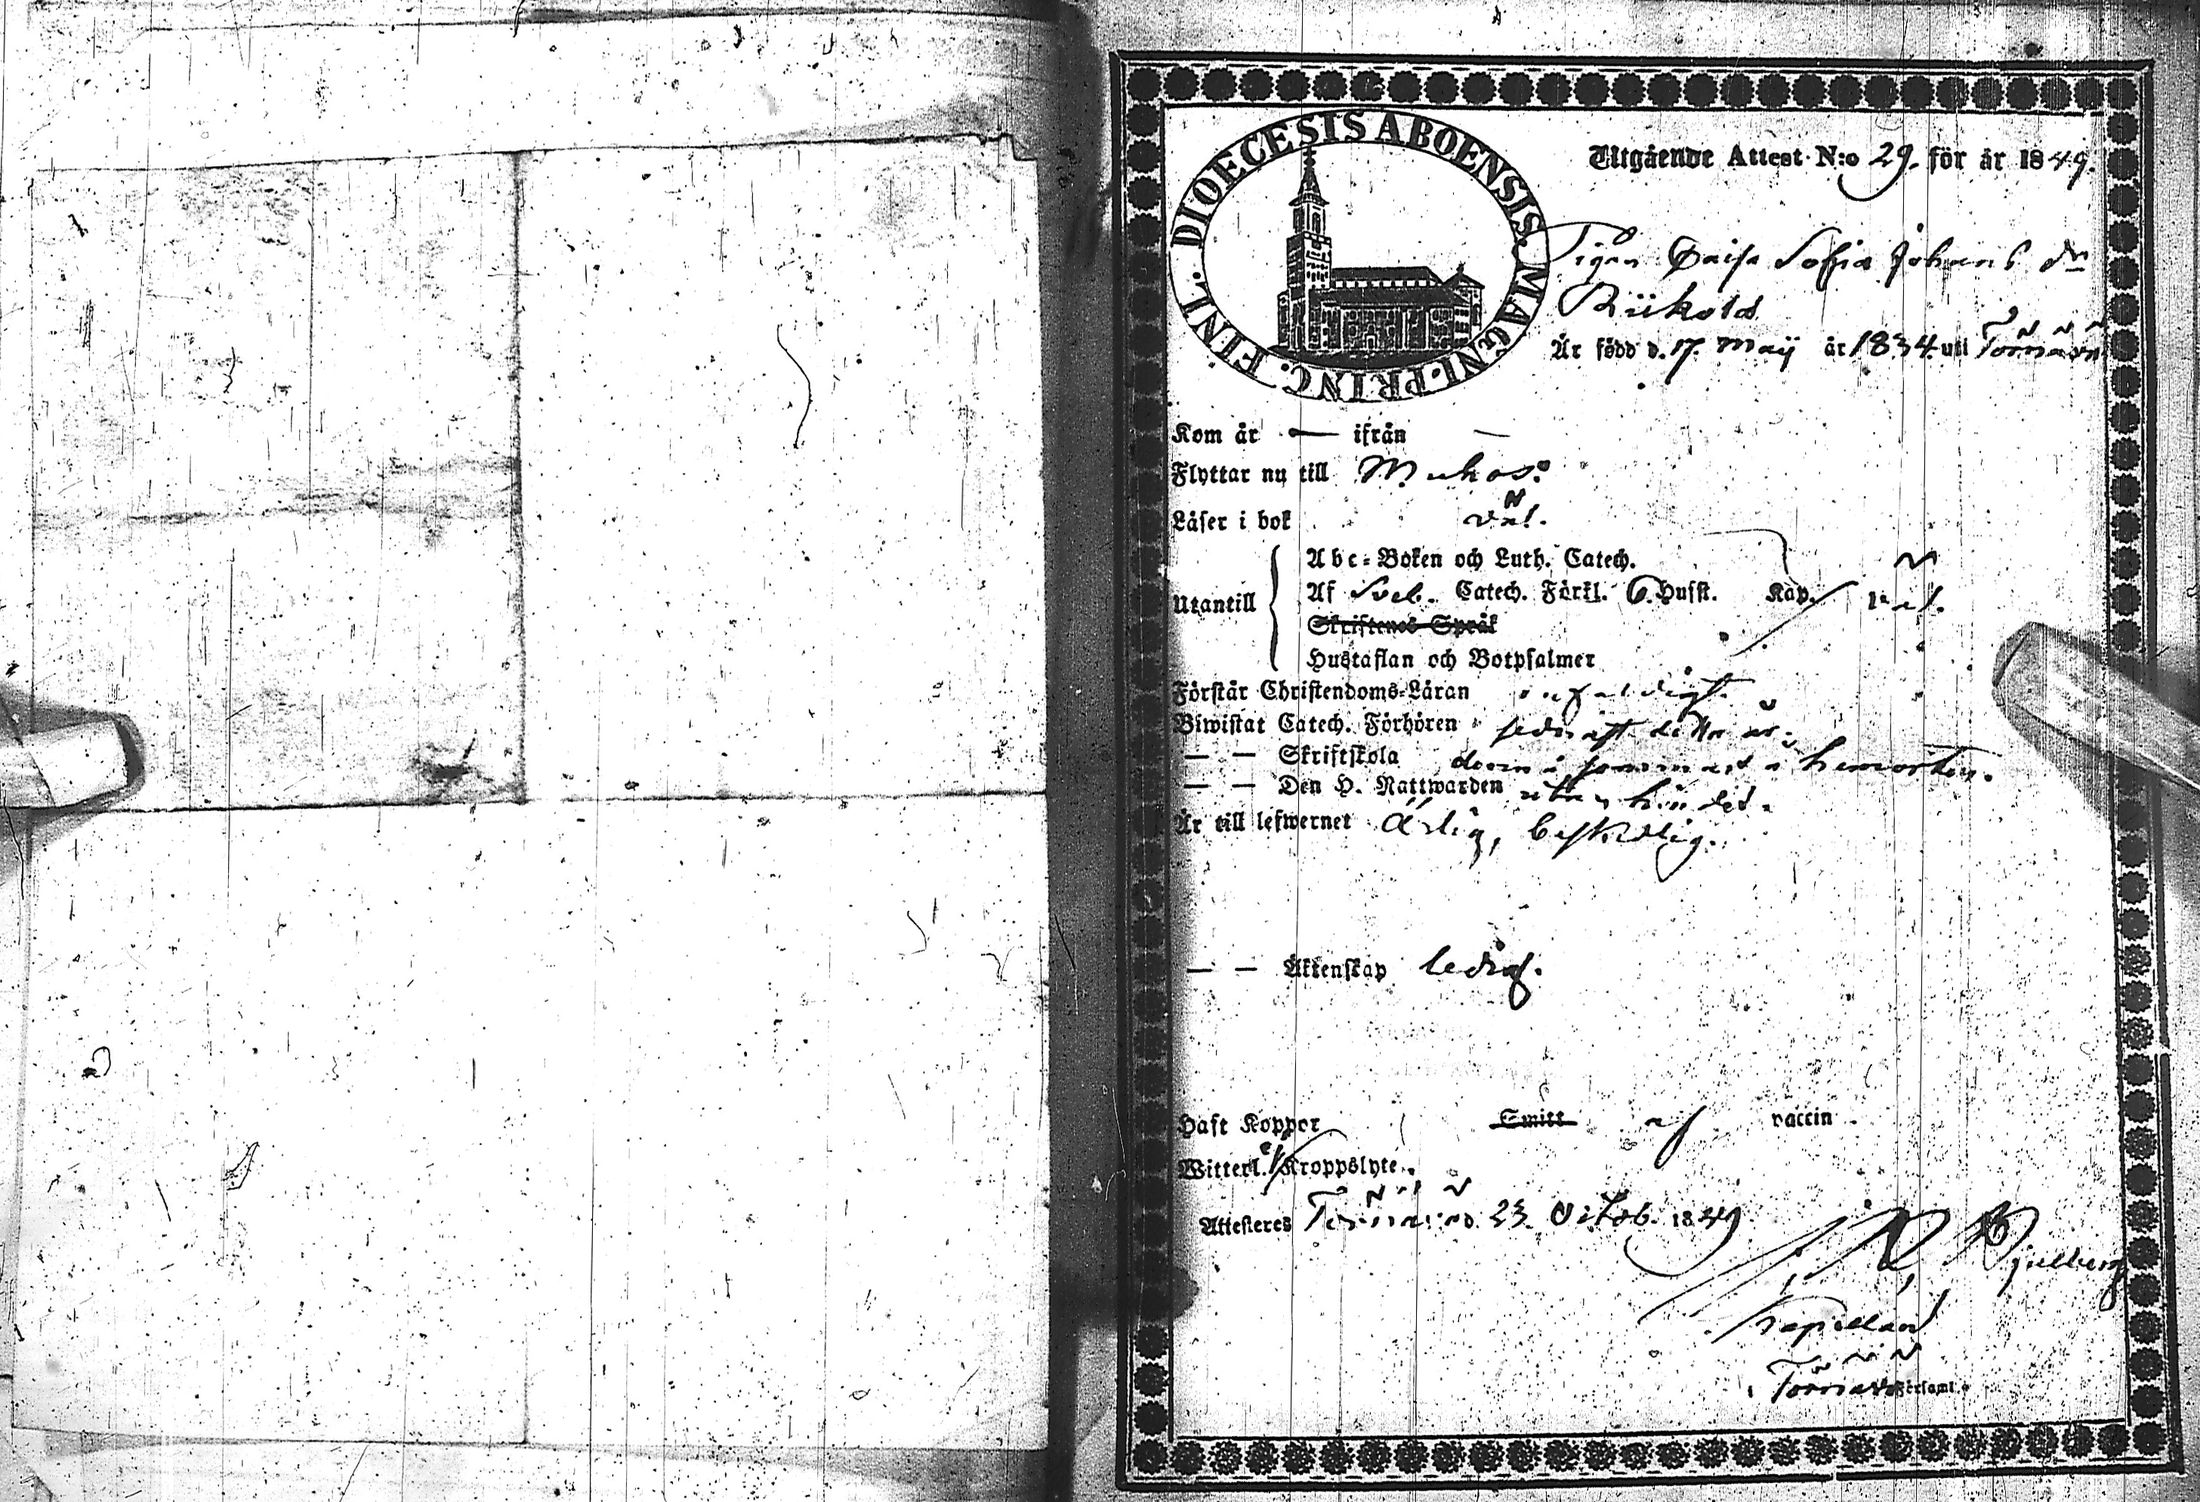 DIOECESIS ABOENSIS. MAGNI. PRINC. FINL.
Utgående Attest N:o 29. för år 1849.
Pigan Caisa Sofia Johans dr
Är född d. 17. Maij år 1834. uti Törnävä
Kom år — ifrån —
Flyttar nu till
Läser i bok väl.
Abc-Boken och Luth. Catech.
Utantill Af Sveb. Catech. Förkl. 6. Husst. Kap. väl.
Skriftenes Språk
Hustaflan och Botpsalmer
Förstår Christendoms-Läran enfaldigt.
Biwistat Catech. Förhören sednast detta år;
— — Skriftskola i hemorten.
— — Den H. Nattwarden
Är till lefwernet Ärlig, beskedlig.
— — Äktenskap ledig.
Haft Koppor Smitt af vaccin
Witterl. ej Kroppslyte.
Attesteras Törnävä d. 23. Octob. 1849
Kapellan
i Törnävä Församl.